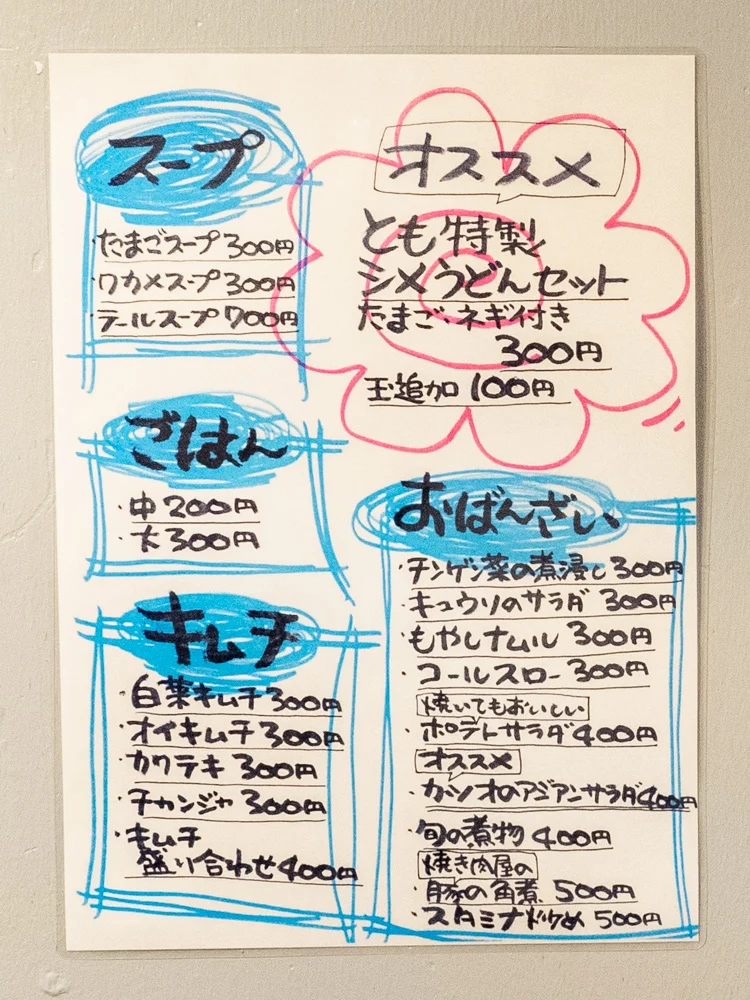 スープ
・たまごスープ 300円
・ワカメスープ 300円
・テールスープ 700円
オススメ
とも特製
シメうどんセット
たまご・ネギ付き
300円
玉追加 100円
ごはん
・中 200円
・大 300円
キムチ
・白菜キムチ 300円
・オイキムチ 300円
・カクテキ 300円
・チャンジャ 300円
・キムチ
盛り合わせ 400円
おばんざい
・チンゲン菜の煮浸し 300円
・キュウリのサラダ 300円
・もやしナムル 300円
・コールスロー 300円
焼いてもおいしい
・ポテトサラダ 400円
オススメ
・カツオのアジアンサラダ 400円
・旬の煮物 400円
焼き肉屋の
・豚の角煮 500円
・スタミナ炒め 500円